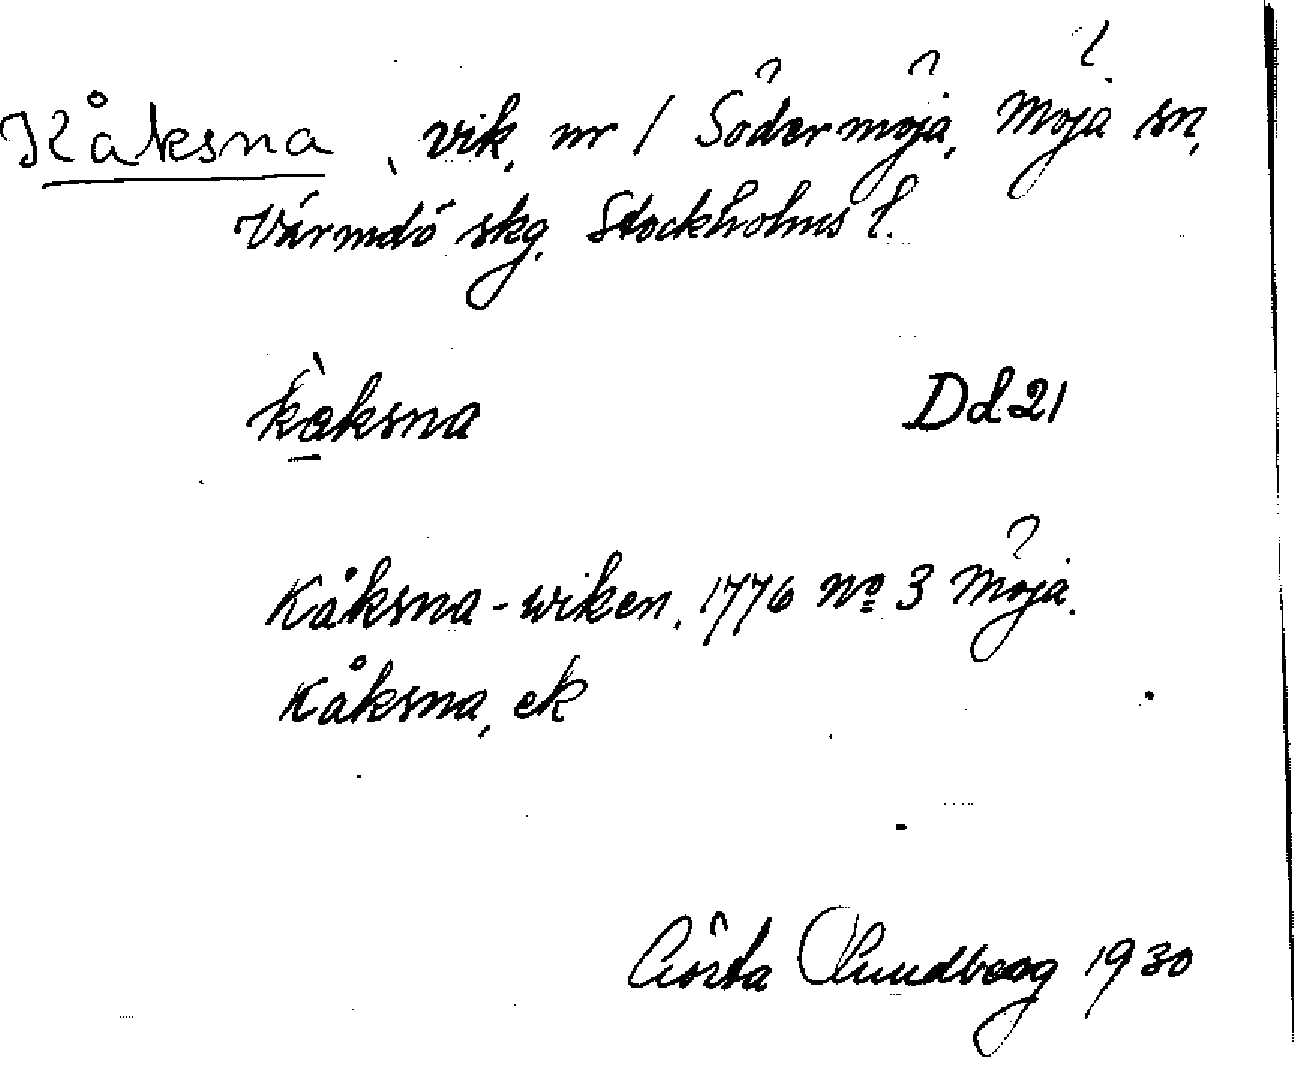 Kåksna, vik, nr 1 Södermöja, Möja sn,
Värmdö skg. Stockholms l.
kåksna Dd 21
Kåksna-wiken, 1776 No 3 Möja.
Kåksna, ek
Gösta Lundberg 1930